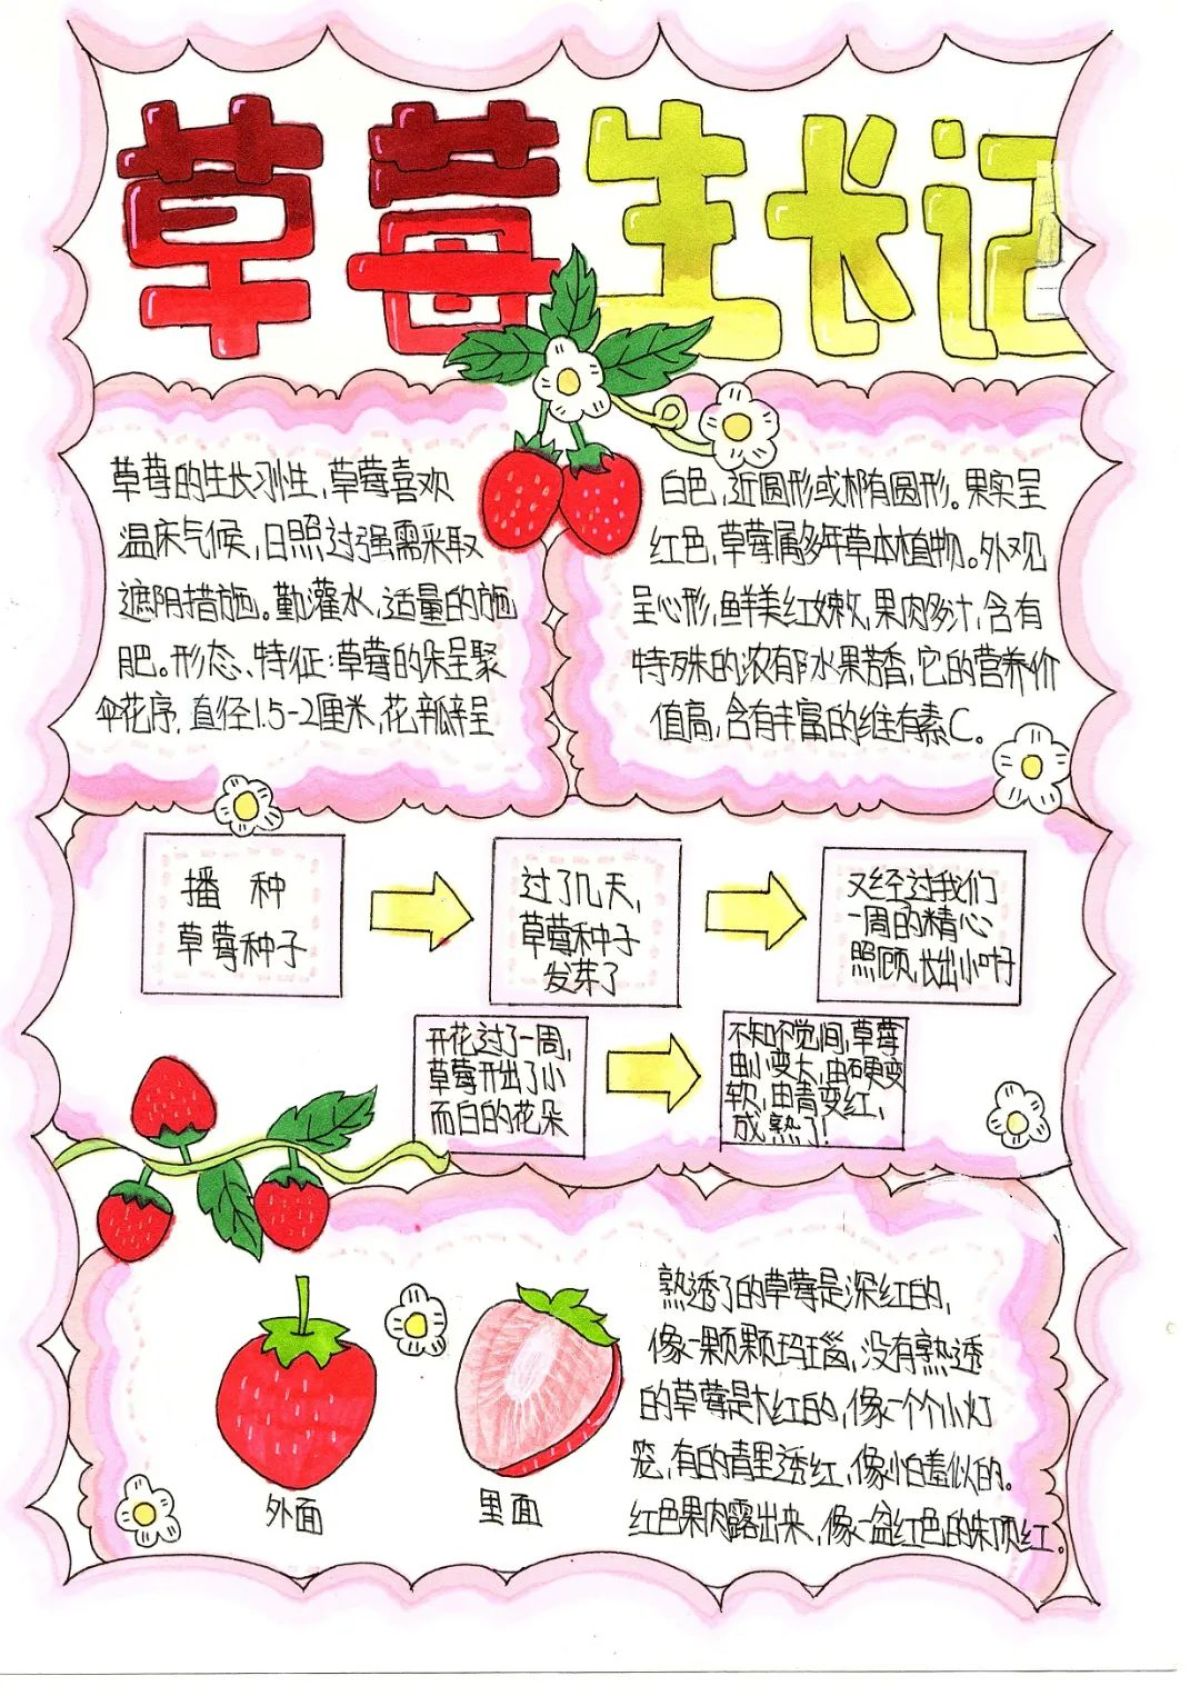 草莓生长记
草莓的生长习性，草莓喜欢
温床气候，日照过强需采取
遮阴措施。勤灌水，适量的施
肥。形态、特征：草莓的朵呈聚
伞花序，直径1.5-2厘米，花瓣呈
白色，近圆形或椭有圆形。果实呈
红色，草莓属多年草本植物。外观
呈心形，鲜美红嫩，果肉多汁，含有
特殊的浓郁水果芳香，它的营养价
值高，含有丰富的维有素C。
播 种
草莓种子
过了几天，
草莓种子
发芽了
又经过我们
一周的精心
照顾，长出小叶子
开花过了一周，
草莓开出了小
而白的花朵
不知不觉间，草莓
由小变大，由硬变
软，由青变红，
成熟了！
熟透了的草莓是深红的，
像一颗颗玛瑙，没有熟透
的草莓是大红的，像一个个小灯
笼，有的青里透红，像怕羞似的。
红色果肉露出来，像一盆红色的朱顶红。
外面
里面